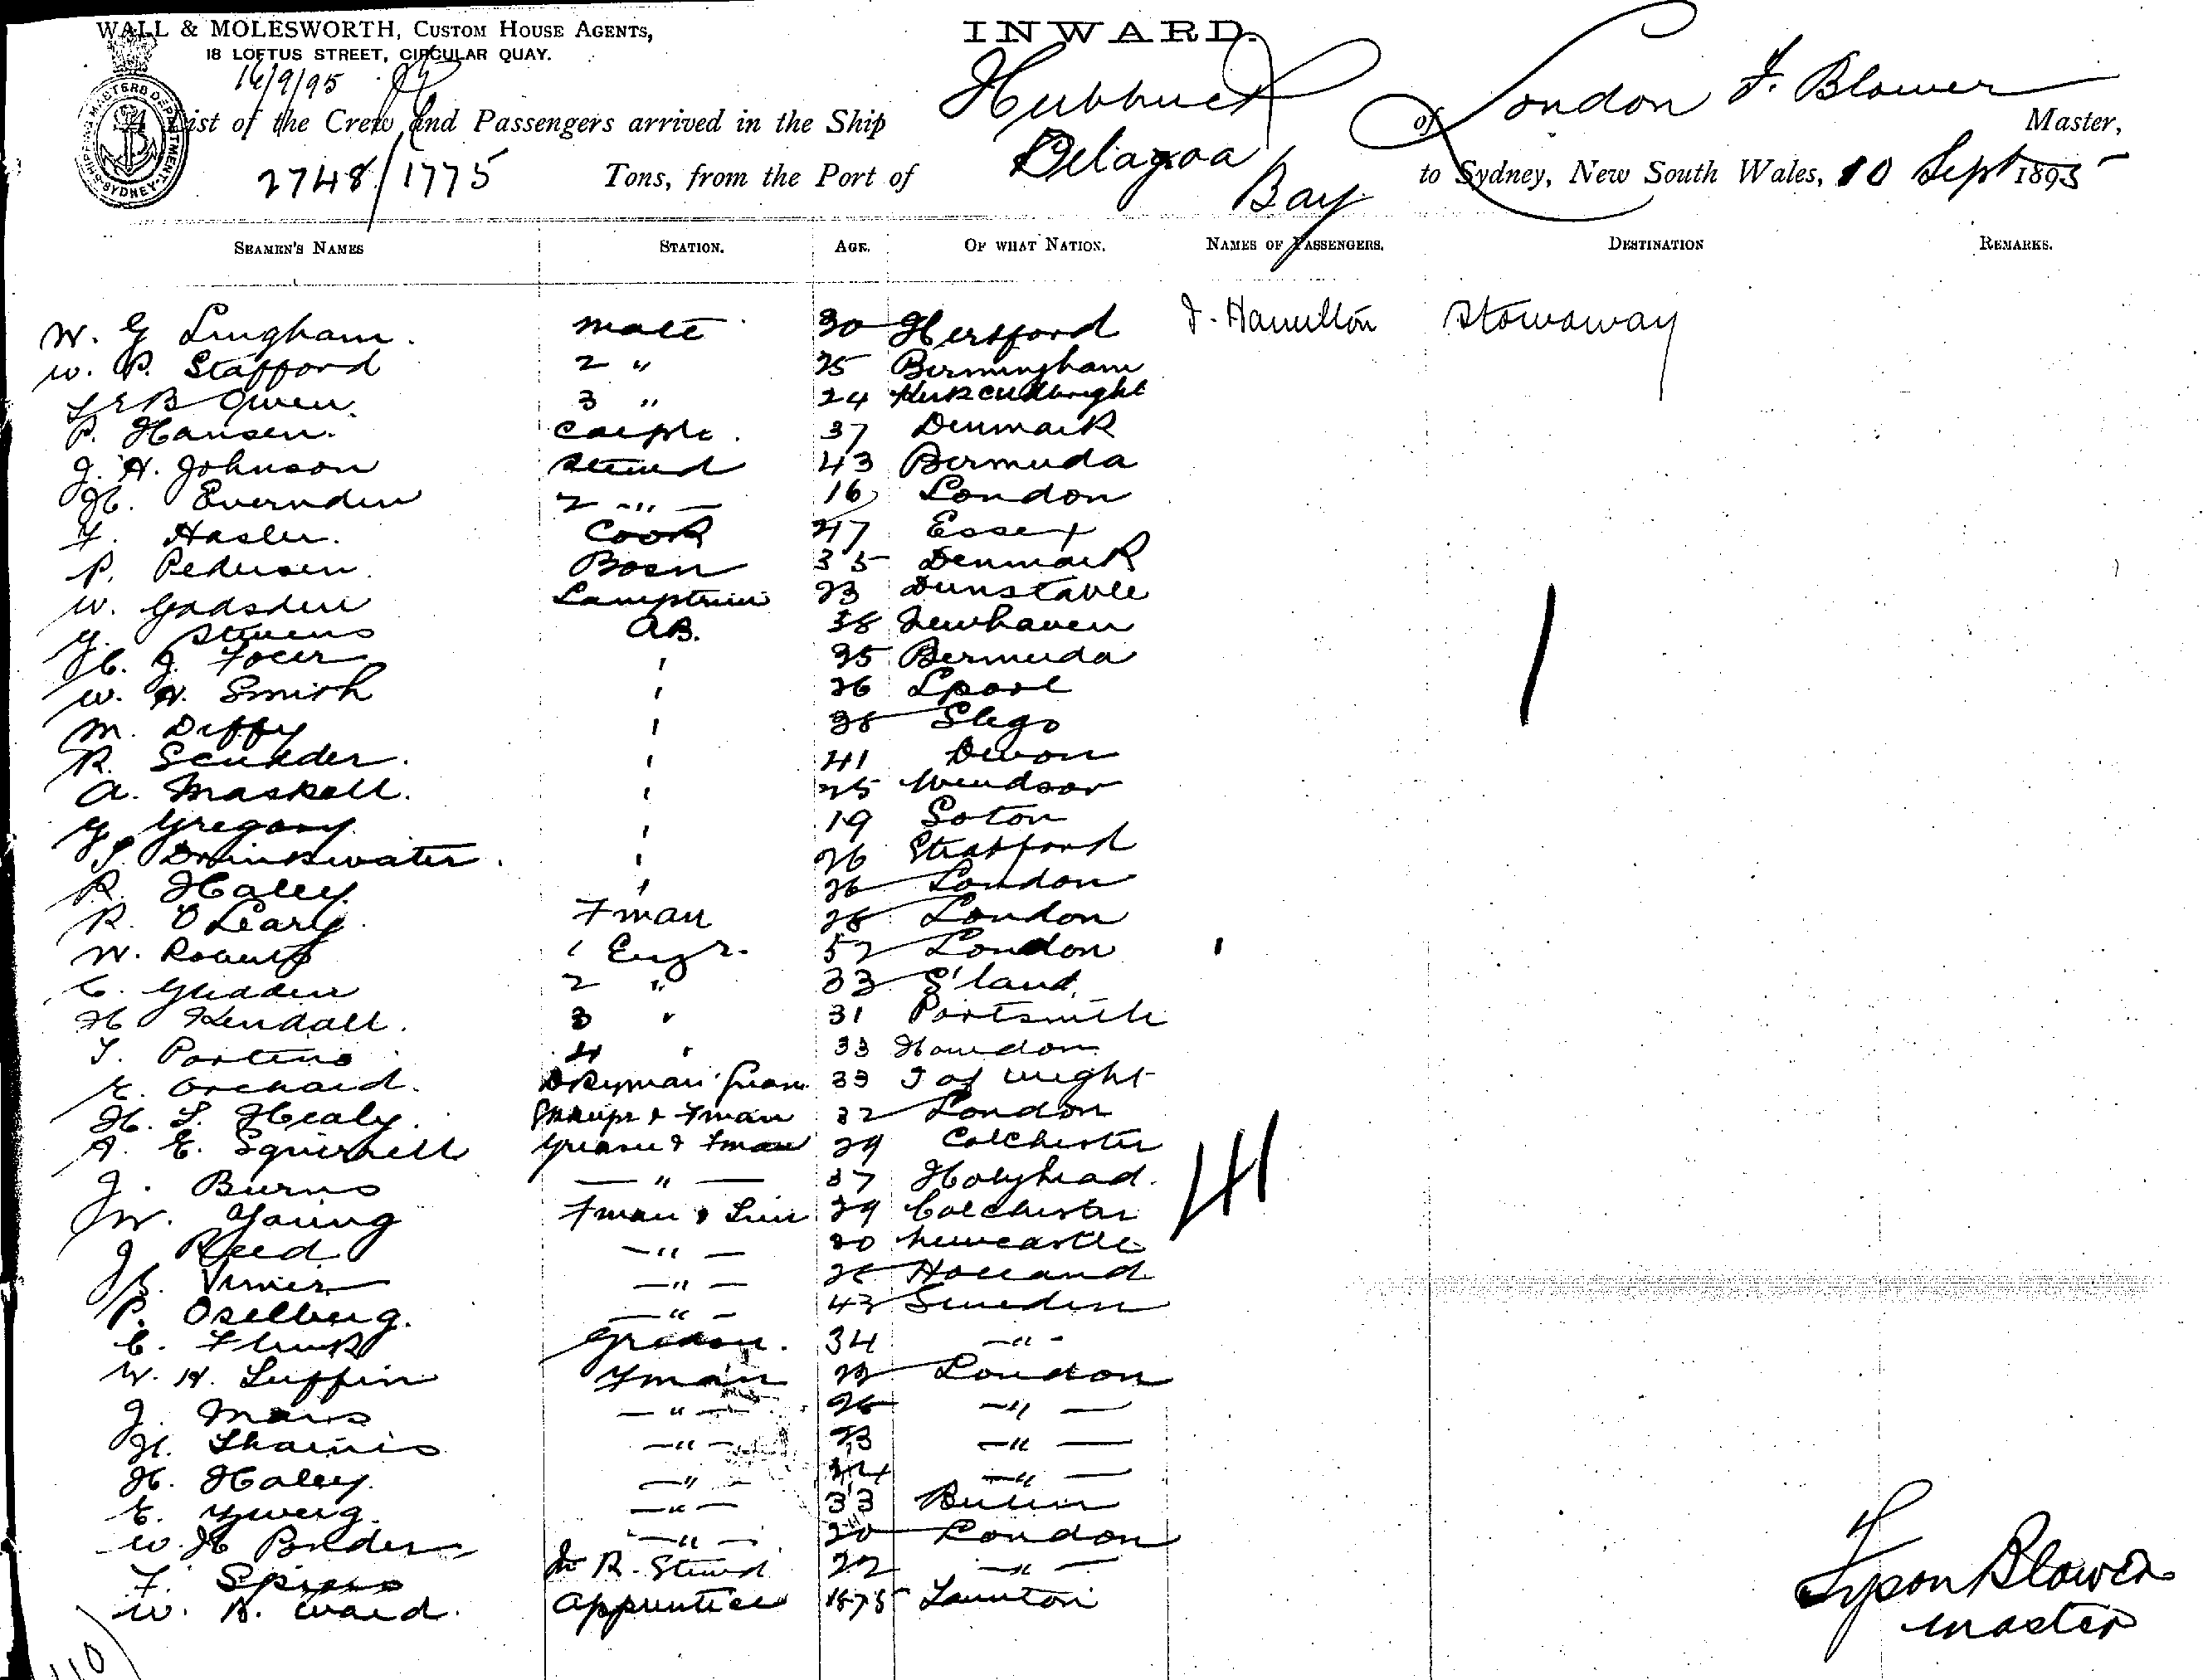 WALL & MOLESWORTH, CUSTOM HOUSE AGENTS,
18 LOFTUS STREET, CIRCULAR QUAY.
INWARD.
16/9/95
SHIPPING MASTERS DEPARTMENT SYDNEY
A List of the Crew and Passengers arrived in the Ship Hubbuck of London F. Blower Master,
2748/1775 Tons, from the Port of Delagoa Bay to Sydney, New South Wales, 10 Sept 1895
SEAMEN'S NAMES STATION. AGE. OF WHAT NATION. NAMES OF PASSENGERS. DESTINATION REMARKS.
W. G Lingham. mate 30 Hertford J. Hamilton Stowaway
W. P. Stafford 2 " 25 Birmingham
B Owen. 3 " 24 Kirkcudbright
P. Hansen. Carptr. 37 Denmark
J. H. Johnson Steward 43 Bermuda
H. Evernden 2 " 16 London
F. Hasler. Cook 47 Essex
P. Pedersen. Bosn 35 Denmark
W. Gadsden Lamptrim 23 Dunstable
G. Stevens AB. 38 Newhaven
H. J. 35 Bermuda
W. H. Smith 26 Lpool
M. Diffy 38 Sligo
R. Scudder. 41 Devon
A. Maskell. 25 Windsor
G Gregory 19 Soton
Drinkwater. 26 Stratford
R. Haley. 26 London
R. O'Leary. Fman 28 London
W. Roberts 1 Engr. 52 London
C. Gladden 2 " 33 S'land
H Kendall. 3 " 31 Portsmith
T. Porteus 4 " 33 Howdon
E. Orchard. Dkyman 33 I of Wight
H. L. Healy. & Fman 32 London
A. E. Squirrell Greaser & Fman 29 Colchester
J. Burns " 37 Holyhead.
W. Young Fman & Trim 29 Colchester
J Reed " 20 Newcastle
" Holland
P. Oselberg. " 43 Sweden
C. Flink Greaser. 34 "
W. H. Luffin Fman 23 London
J. " 26 "
H. " 23 "
H. Haley. " 24 "
E. " 33 Berlin
W. H " 20 London
F. R. Steward 22 "
W. A. Ward. Apprentice 1875 Taunton
1
41
Tyson Blower
Master
110